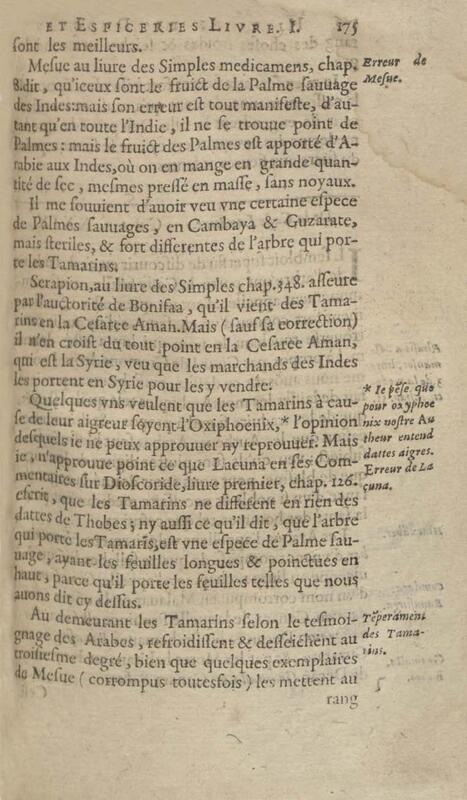 ET ESPICERIES LIVRE. I. 175
sont les meilleurs.
Mesue au liure des Simples medicamens, chap.
8. dit, qu'iceux sont le fruict de la Palme sauuage
des Indes: mais son erreur est tout manifeste, d'au-
tant qu'en toute l'Indie, il ne se trouue point de
Palmes: mais le fruict des Palmes est apporté d'A-
rabie aux Indes, où on en mange en grande quan-
tité de sec, mesmes pressé en masse, sans noyaux.
Il me souuient d'auoir veu vne certaine espece
de Palmes sauuages, en Cambaya & Guzarate,
mais steriles, & fort differentes de l'arbre qui por-
te les Tamarins.
Serapion, au liure des Simples chap. 348. asseure
par l'auctorité de Bonifaa, qu'il vient des Tama-
rins en la Cesaree Aman. Mais (sauf sa correction)
il n'en croist du tout point en la Cesaree Aman,
qui est la Syrie, veu que les marchands des Indes
les portent en Syrie pour les y vendre.
Quelques vns veulent que les Tamarins à cau-
se de leur aigreur soyent l'Oxiphoenix,* l'opinion
desquels ie ne peux approuuer ny reprouuer. Mais
ie, n'approuue point ce que Lacuna en ses Com-
mentaires sur Dioscoride, liure premier, chap. 126.
escrit, que les Tamarins ne different en rien des
dattes de Thebes; ny aussi ce qu'il dit, que l'arbre
qui porte les Tamaris, est vne espece de Palme sau-
uage, ayant les feuilles longues & poinctues en
haut, parce qu'il porte les feuilles telles que nous
auons dit cy dessus.
Au demeurant les Tamarins selon le tesmoi-
gnage des Arabes, refroidissent & desseichent au
troisiesme degré, bien que quelques exemplaires
de Mesue (corrompus toutesfois) les mettent au
rang
Erreur de
Mesue.
* Ie pēse que
pour oxyphoe
nix nostre Au
theur entend
dattes aigres.
Erreur de La
cuna.
Tēperament
des Tama-
rins.